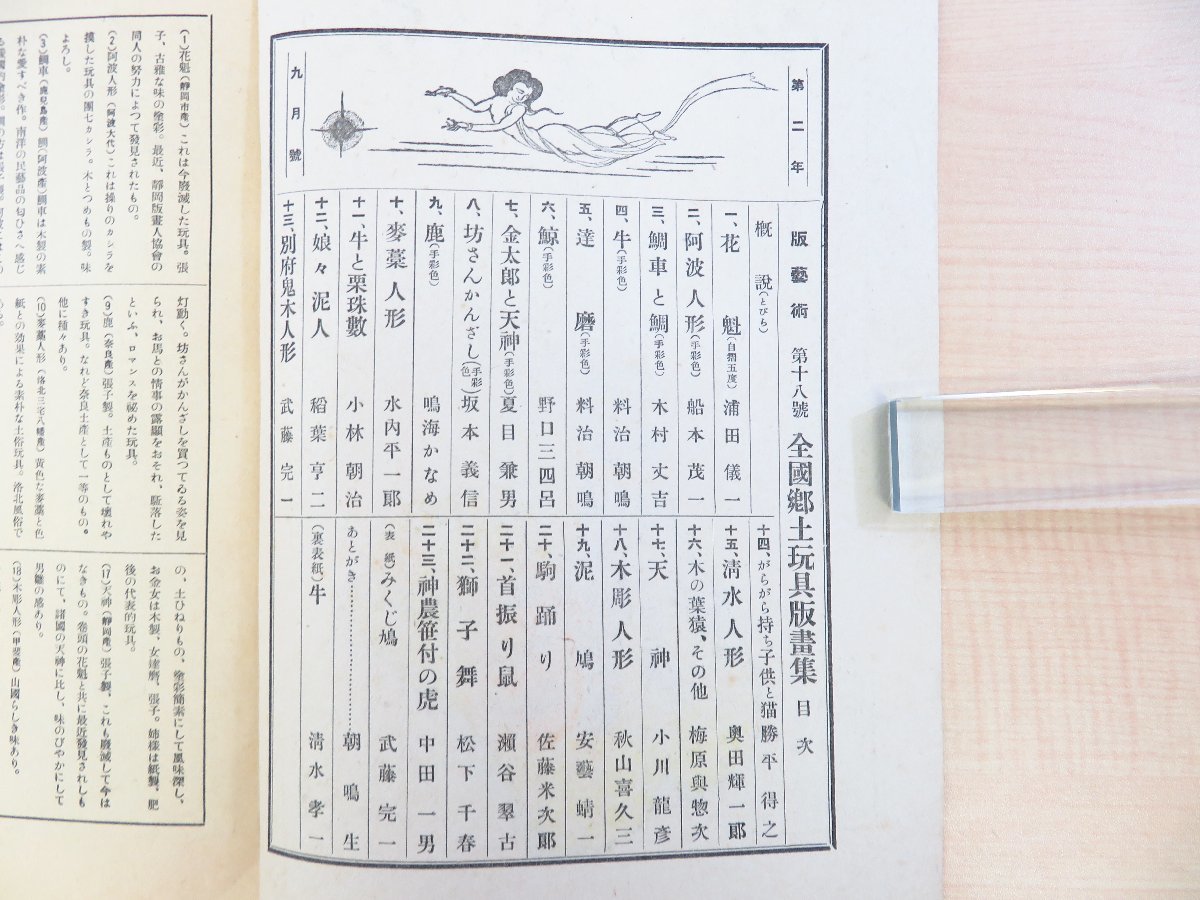 第二年
九月號
版藝術　第十八號　全國鄕土玩具版畫集　目次
概説（とびら）
一、花魁（自摺五度）　浦田儀一
二、阿波人形（手彩色）　船本茂一
三、鯛車と鯛（手彩色）　木村丈吉
四、牛（手彩色）　料治朝鳴
五、達磨（手彩色）　料治朝鳴
六、鯨（手彩色）　野口三四呂
七、金太郎と天神（手彩色）　夏目兼男
八、坊さんかんざし（手彩色）　坂本義信
九、鹿（手彩色）　鳴海かなめ
十、麥藁人形　水內平一郎
十一、牛と栗珠數　小林朝治
十二、娘々泥人　稻葉亨二
十三、別府鬼木人形　武藤完一
十四、がらがら持ち子供と猫　勝平得之
十五、淸水人形　奥田輝一郎
十六、木の葉猿、その他　梅原與惣次
十七、天神　小川龍彦
十八、木彫人形　秋山喜久三
十九、泥鳩　安藝蜻一
二十、駒踊り　佐藤米次郎
二十一、首振り鼠　瀨谷翠古
二十二、獅子舞　松下千春
二十三、神農笹付の虎　中田一男
（表紙）みくじ鳩　武藤完一
あとがき……………………朝鳴生
（裏表紙）牛　淸水孝一
（1）花魁（靜岡市產）これは今廢滅した玩具。張
子、古雅な味の塗彩。最近、靜岡版畫人協會の
同人の努力によつて發見されたもの。
（2）阿波人形（阿波大代）これは操りのカシラを
摸した玩具の團七カシラ。木とつめもの製。味
よろし。
（3）鯛車（鹿兒島產）鯛（阿波產）鯛車は木製の素
朴な愛すべき作。南洋の民藝品の匂ひさへ感じ
灯動く。坊さんがかんざしを買つてゐる姿を見
られ、お馬との情事の露顯をおそれ、驅落した
といふ、ロマンスを祕めた玩具。
（9）鹿（奈良產）張子製。土產ものとして壞れや
すき玩具。なれど奈良土產として一等のもの。
他に種々あり。
（10）麥藁人形（洛北三宅八幡產）黃色た麥藁と色
紙との効果による素朴な土俗玩具。洛北風俗で
の、土ひねりもの、塗彩簡素にして風味深し、
お金女は木製、女達磨、張子。姉樣は紙製、肥
後の代表的玩具。
（17）天神（靜岡產）張子製、これも廢滅して今は
なきもの。卷頭の花魁と共に最近發見されしも
のにて、諸國の天神に比し、味のびやかにして
男雛の感あり。
（18）木彫人形（甲斐產）山國らしき味あり。